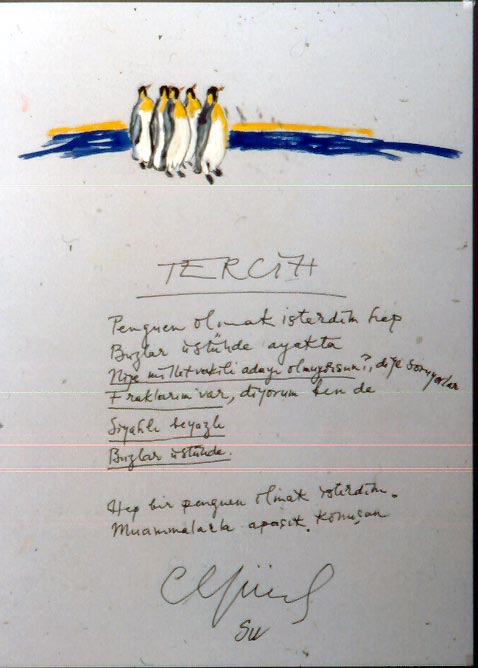 TERCİH
Penguen olmak isterdim hep
Buzlar üstünde ayakta
Niye milletvekili adayı olmuyorsun?, diye soruyorlar
Fraklarım var, diyorum ben de
Siyahlı beyazlı
Buzlar üstünde.
Hep bir penguen olmak isterdim.
Muammalarla apaçık konuşan